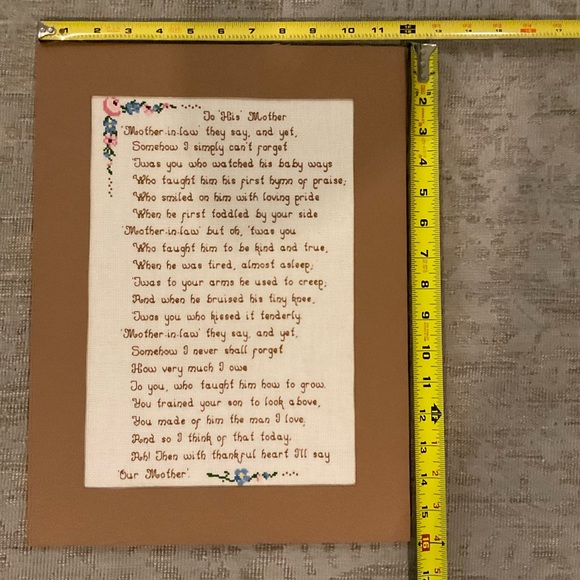 1 2 3 4 5 6 7 8 9 10 11
2
3
4
5
6
7
8
9
10
11
12
13
14
15
16
To "His" Mother
"Mother-in-law" they say, and yet,
Somehow I simply can't forget
'Twas you who watched his baby ways
Who taught him his first hymn of praise;
Who smiled on him with loving pride
When he first toddled by your side
"Mother-in-law" but oh, 'twas you
Who taught him to be kind and true,
When he was tired, almost asleep;
'Twas to your arms he used to creep;
And when he bruised his tiny knee,
'Twas you who kissed it tenderly.
"Mother-in-law" they say, and yet,
Somehow I never shall forget
How very much I owe
To you, who taught him how to grow.
You trained your son to look above,
You made of him the man I love;
And so I think of that today.
Ah! Then with thankful heart I'll say
"Our Mother".